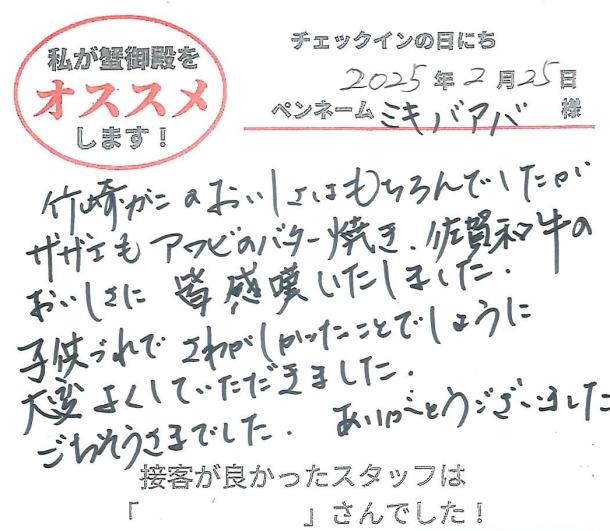 私が蟹御殿を
オススメ
します！
チェックインの日にち
2025年2月25日
ペンネーム ミキバアバ 様
竹崎がにのおいしさはもちろんでしたが
サザエもアワビのバター焼き、佐賀和牛の
おいしさに 皆感嘆いたしました．
子供づれで さわがしかったことでしょうに
大変よくしていただきました．
ごちそうさまでした． ありがとうございました
接客が良かったスタッフは
「　　　　　　　」さんでした！